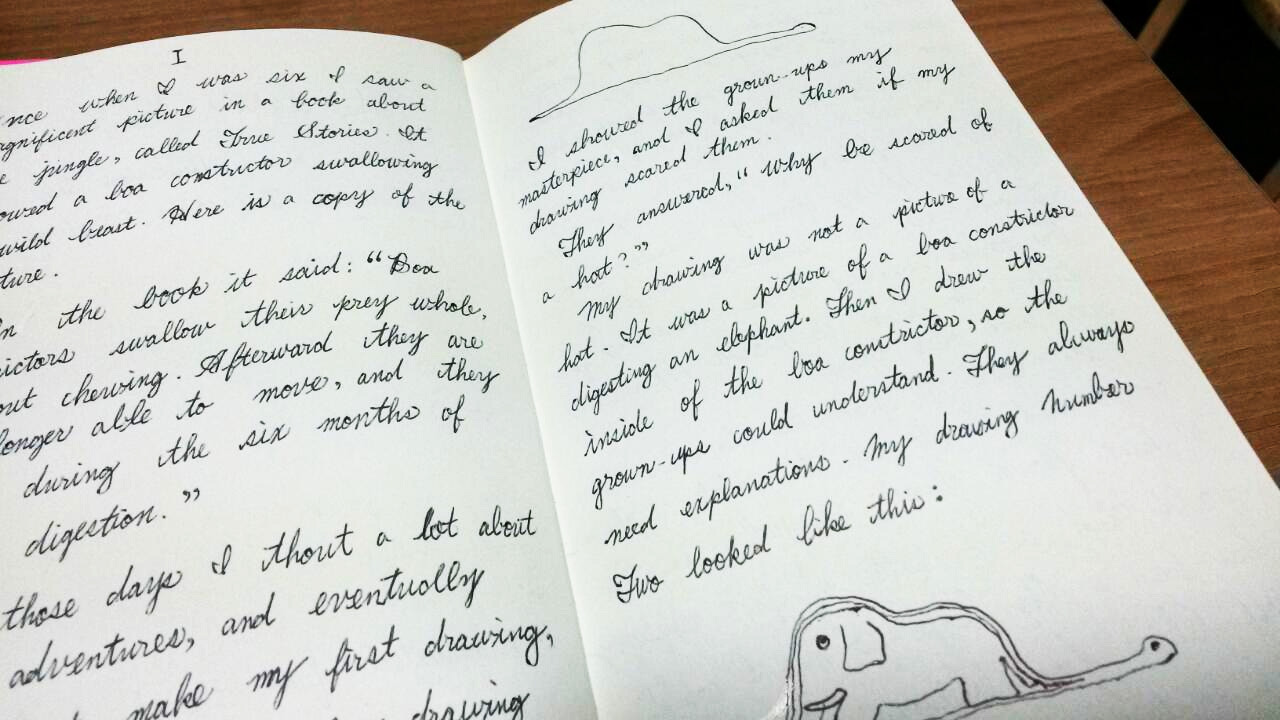 I
nce when I was six I saw a
gnificent picture in a book about
e jungle, called True Stories. It
owed a boa constrictor swallowing
wild beast. Here is a copy of the
ture.
In the book it said: “Boa
ictors swallow their prey whole,
out chewing. Afterward they are
longer able to move, and they
during the six months of
digestion.”
those days I thout a lot about
adventures, and eventually
make my first drawing,
drawing
I showed the grown-ups my
masterpiece, and I asked them if my
drawing scared them.
They answered, “Why be scared of
a hat?”
My drawing was not a picture of a
hat. It was a picture of a boa constrictor
digesting an elephant. Then I drew the
inside of the boa constrictor, so the
grown-ups could understand. They always
need explanations. My drawing Number
Two looked like this: